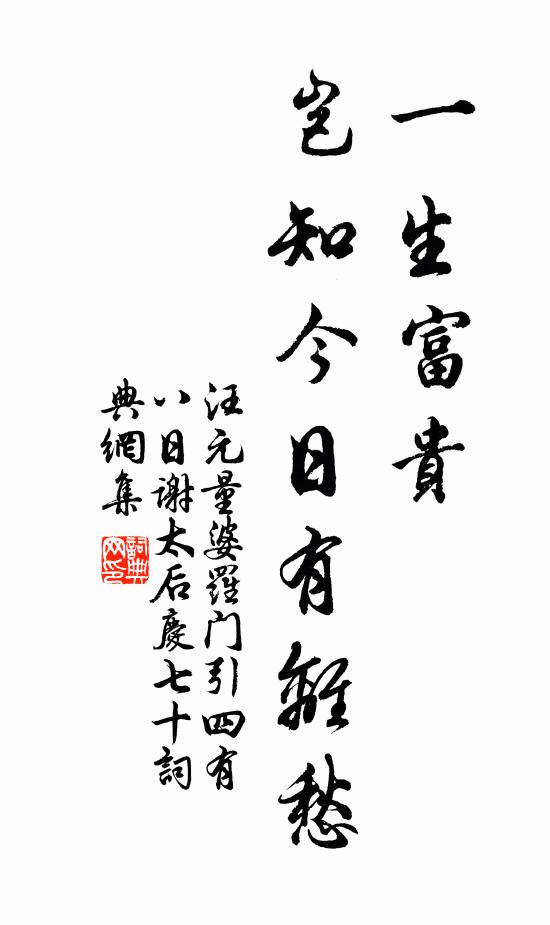 一生富貴
豈知今日有離愁
汪元量婆羅門引四有
八日謝太后慶七十詞
典網集
詞典網印